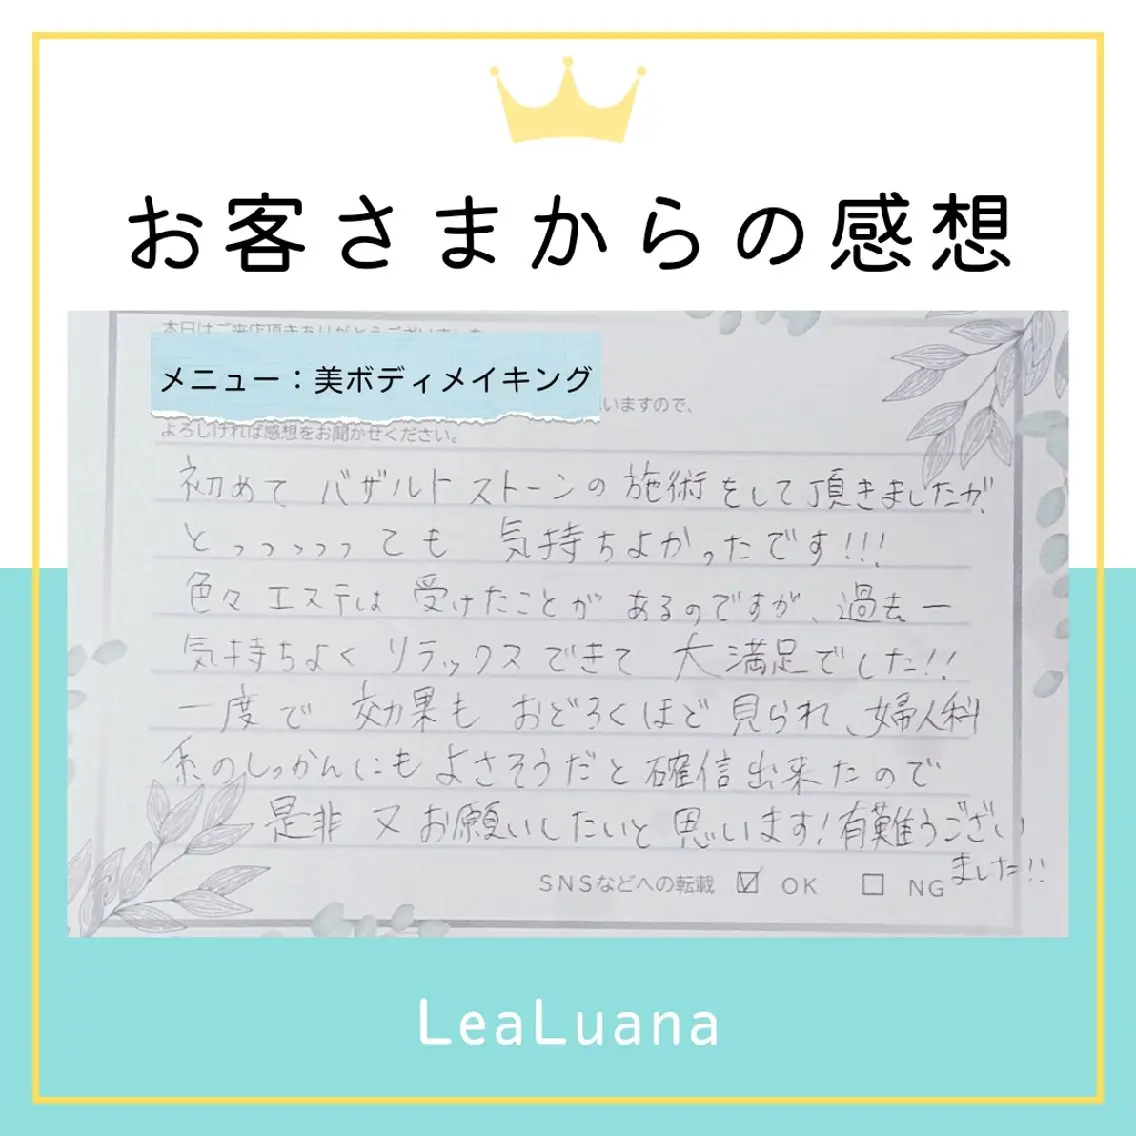 お客さまからの感想
本日はご来店頂きありがとうございました
メニュー：美ボディメイキング
いますので、
よろしければ感想をお聞かせください。
初めて バザルトストーンの施術をして頂きましたが、
とっっっっっても 気持ちよかったです!!!
色々エステは受けたことがあるのですが、過去一
気持ちよくリラックスできて大満足でした!!
一度で効果もおどろくほど見られ、婦人科
系のしっかんにもよさそうだと確信出来たので
是非又お願いしたいと思います!有難うござい
ました!!
SNSなどへの転載 ☑ OK ☐ NG
LeaLuana